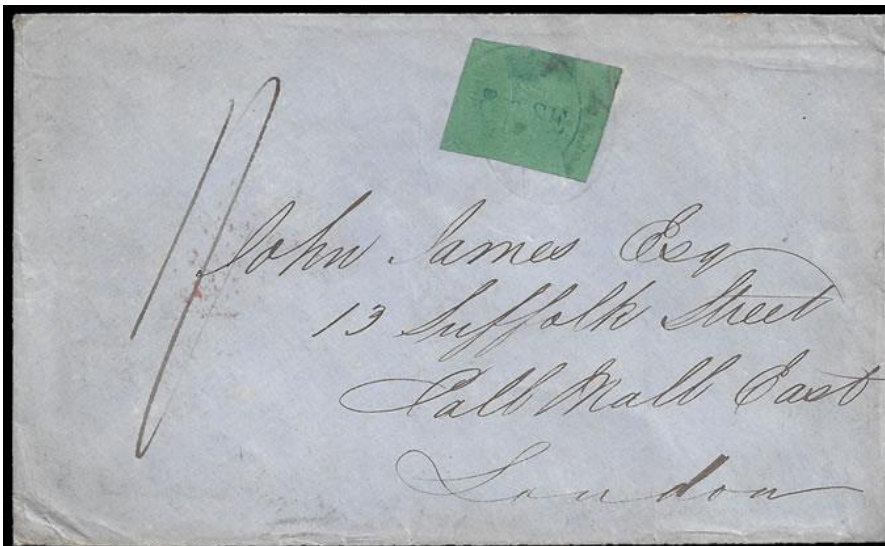 John James Esq
13 Suffolk Street
Pall Mall East
London